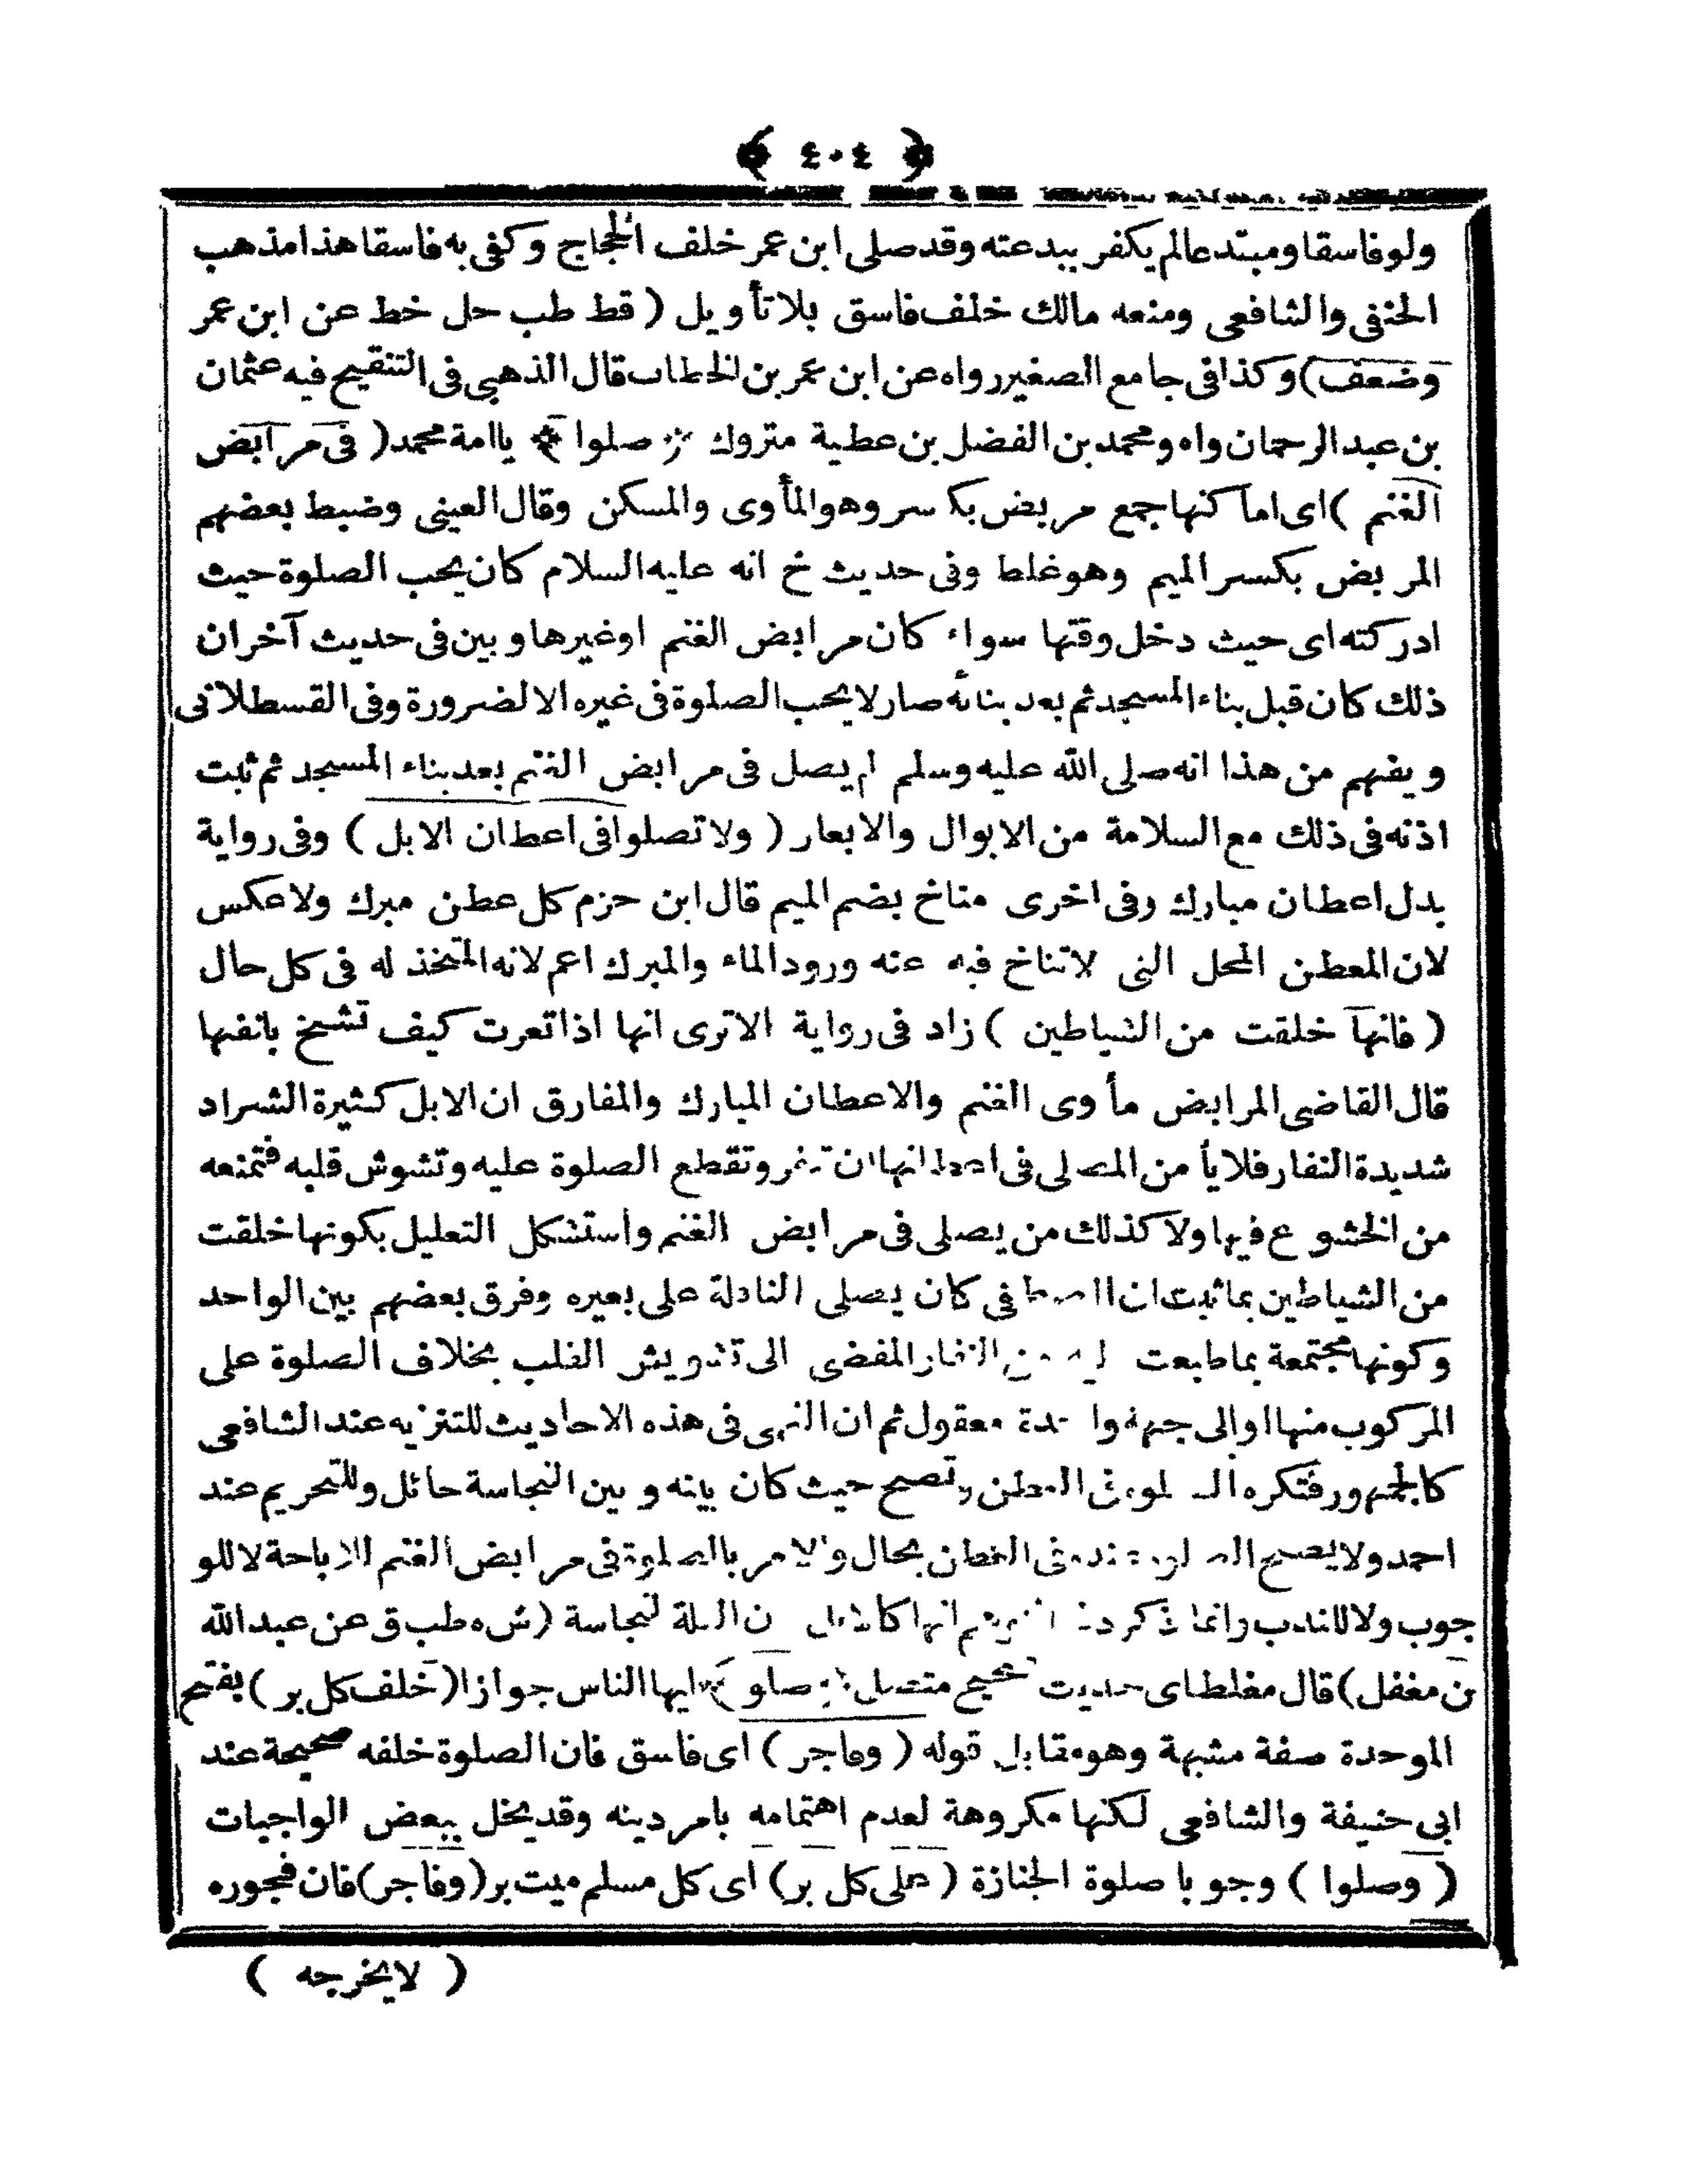 ﴿ ٤٠٤ ﴾
ولو فاسقا ومبتدعا لم يكفر ببدعته وقد صلى ابن عمر خلف الحجاج وكفى به فاسقا هذا مذهب
الحنفى والشافعى ومنعه مالك خلف فاسق بلا تأويل ( قط طب حل خط عن ابن عمر
وضعف) وكذا فى جامع الصغير رواه عن ابن عمر بن الخطاب قال الذهبى فى التنقيح فيه عثمان
بن عبد الرحمان واه ومحمد بن الفضل بن عطية متروك ﴿ صلوا ﴾ يا امة محمد ( فى مرابض
الغنم ) اى اماكنها جمع مربض بكسر وهو المأوى والمسكن وقال العينى وضبط بعضهم
المربض بكسر الميم وهو غلط وفى حديث خ انه عليه السلام كان يحب الصلوة حيث
ادركته اى حيث دخل وقتها سواء كان مرابض الغنم او غيرها وبين فى حديث آخر ان
ذلك كان قبل بناء المسجد ثم بعد بنائه صار لا يحب الصلوة فى غيره الا لضرورة وفى القسطلانى
ويفهم من هذا انه صلى الله عليه وسلم لم يصل فى مرابض الغنم بعد بناء المسجد ثم ثبت
اذنه فى ذلك مع السلامة من الابوال والابعار ( ولا تصلوا فى اعطان الابل ) وفى رواية
بدل اعطان مبارك وفى اخرى مناخ بضم الميم قال ابن حزم كل عطن مبرك ولا عكس
لان المعطن المحل التى لا تناخ فيه عنه ورود الماء والمبرك اعم لانه المتخذ له فى كل حال
( فانها خلقت من الشياطين ) زاد فى رواية الا ترى انها اذا تعرت كيف تشمخ بانفها
قال القاضى المرابض مأوى الغنم والاعطان المبارك والمفارق ان الابل كثيرة الشراد
شديدة النفار فلا يأ من المصلى فى اعطانها ان تنفر وتقطع الصلوة عليه وتشوش قلبه فتمنعه
من الخشوع فيها ولا كذلك من يصلى فى مرابض الغنم واستشكل التعليل بكونها خلقت
من الشياطين بما ثبت ان المصطفى كان يصلى النافلة على بعيره وفرق بعضهم بين الواحد
وكونها مجتمعة بما طبعت النفار المفضى الى تشويش القلب بخلاف الصلوة على
المركوب منها او الى جهة واحدة معقول ثم ان النهى فى هذه الاحاديث للتنزيه عند الشافعى
كالجمهور فتكره الصلوة فى العطن وتصح حيث كان بينه وبين النجاسة حائل وللتحريم عند
احمد ولا يصح الصلوة عنده فى العطن بحال والامر بالصلوة فى مرابض الغنم للاباحة لا للو
جوب ولا للندب وانما ذكر انها كالابل العلة لنجاسة (ش ه طب ق عن عبد الله
بن مغفل) قال مغلطاى حديث صحيح متصل ﴿ صلو ﴾ ايها الناس جوازا ( خلف كل بر ) بفتح
الموحدة صفة مشبهة وهو مقابل قوله ( وفاجر ) اى فاسق فان الصلوة خلفه صحيحة عند
ابى حنيفة والشافعى لكنها مكروهة لعدم اهتمامه بامر دينه وقد يخل ببعض الواجبات
( وصلوا ) وجوبا صلوة الجنازة ( على كل بر) اى كل مسلم ميت بر ( وفاجر) فان فجوره
( لا يخرجه )